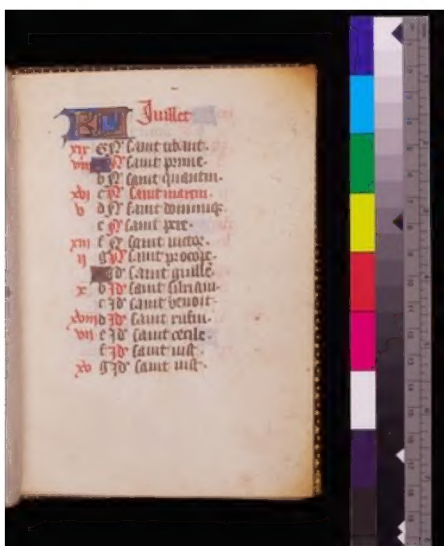 KL Juillet
xix g N saint tibaut.
viii N saint prime.
b N saint quantin.
xvi c N saint martin.
v d N saint dominiq.
e N saint pere.
xiii f N saint victor.
ii g N saint procope.
Id saint guille.
x b Id saint
c Id saint benoit.
xviii d Id saint rufin.
vii e Id saint cecile.
f Id saint iust.
xv g Id saint iust.